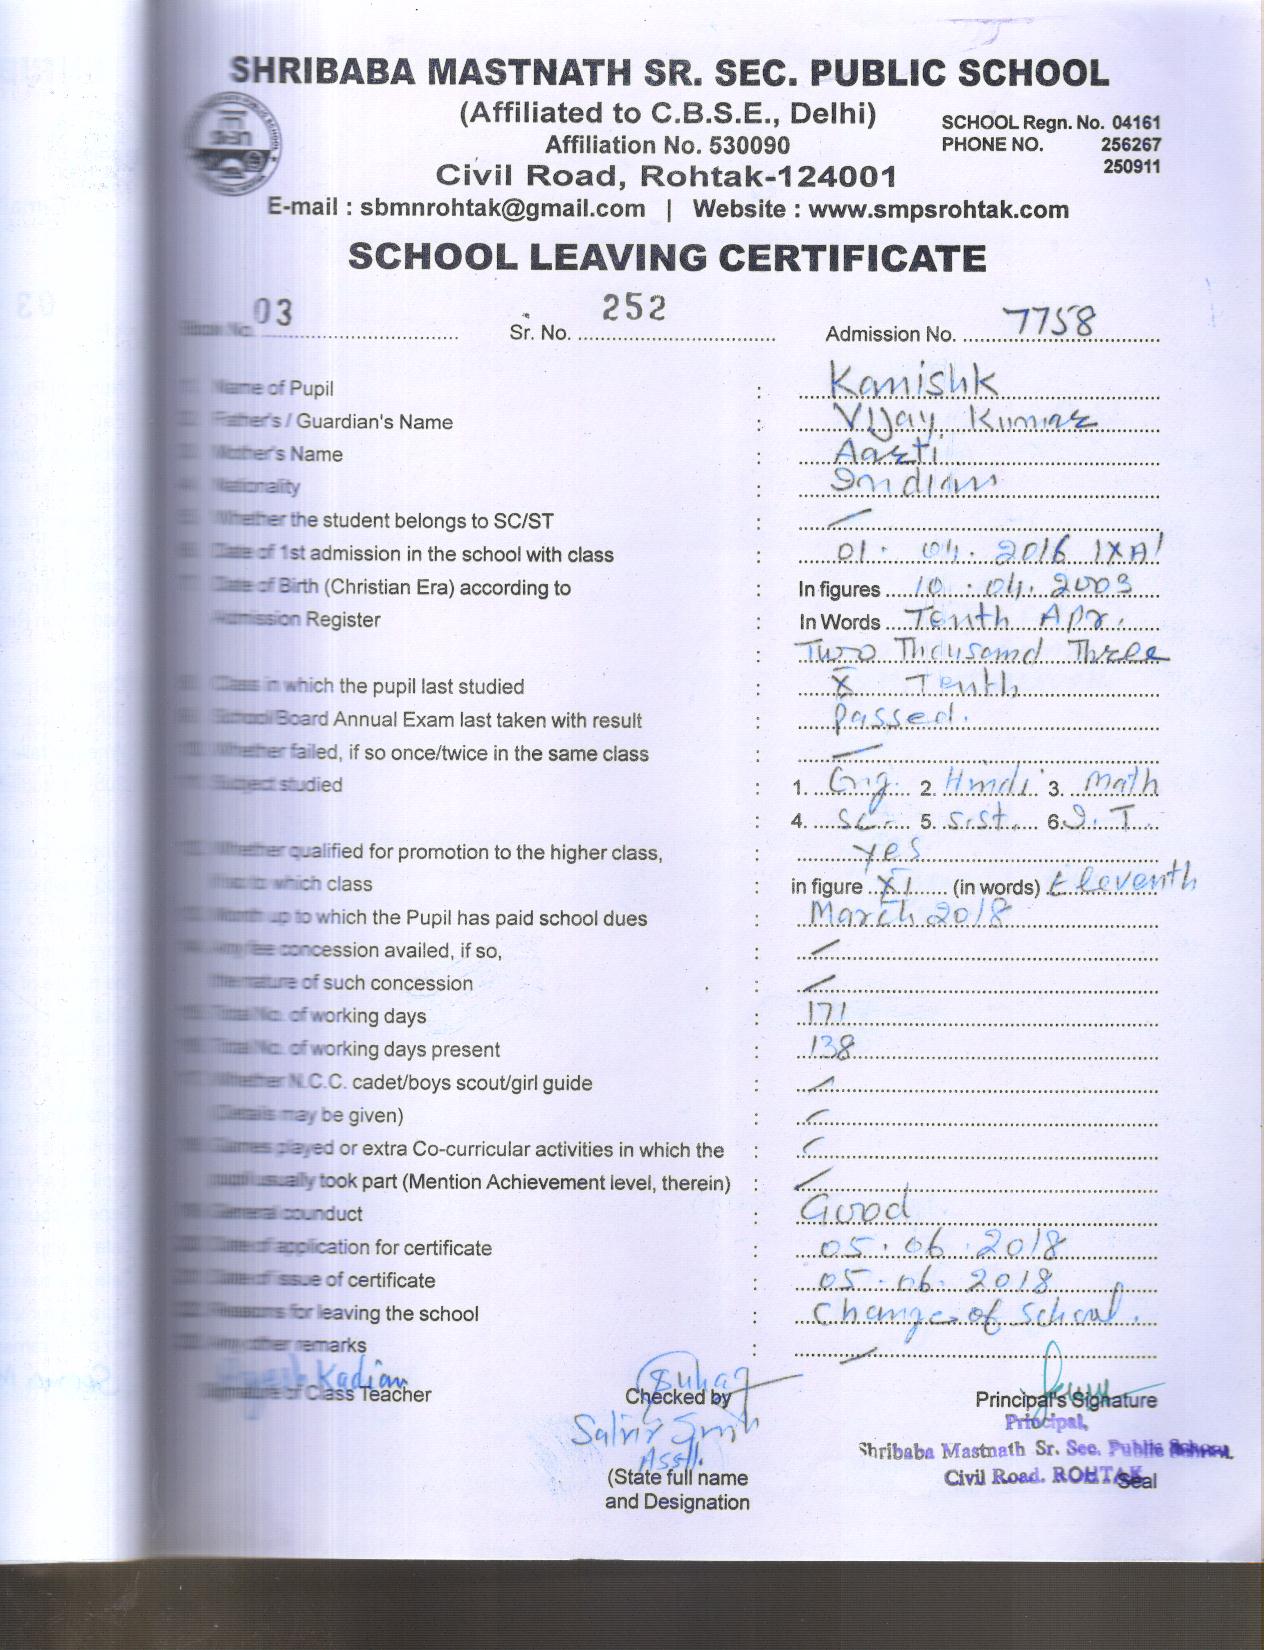 SHRIBABA MASTNATH SR. SEC. PUBLIC SCHOOL
(Affiliated to C.B.S.E., Delhi)
SCHOOL Regn. No. 04161
Affiliation No. 530090
PHONE NO. 256267
250911
Civil Road, Rohtak-124001
E-mail : sbmnrohtak@gmail.com | Website : www.smpsrohtak.com
SCHOOL LEAVING CERTIFICATE
Book No. 03 Sr. No. 252 Admission No. 7758
Name of Pupil : Kanishk
Father's / Guardian's Name : Vijay Kumar
Mother's Name : Aarti
Nationality : Indian
Whether the student belongs to SC/ST : —
Date of 1st admission in the school with class : 01. 04. 2016 IXA
Date of Birth (Christian Era) according to : In figures 10. 04. 2003
Admission Register : In Words Tenth Apr.
: Two Thousand Three
Class in which the pupil last studied : X Tenth
School/Board Annual Exam last taken with result : Passed.
Whether failed, if so once/twice in the same class : —
Subject studied 1. Eng. 2. Hindi 3. Math
: 4. Sc. 5. S.St. 6. I.T.
Whether qualified for promotion to the higher class, : yes
if so to which class : in figure XI (in words) Eleventh
Month up to which the Pupil has paid school dues : March 2018
Any fee concession availed, if so, : —
the nature of such concession : —
Total No. of working days : 171
Total No. of working days present : 138
Whether N.C.C. cadet/boys scout/girl guide : —
(Details may be given) : —
Games played or extra Co-curricular activities in which the : —
pupil usually took part (Mention Achievement level, therein) : —
General counduct : Good
Date of application for certificate : 05. 06. 2018
Date of issue of certificate : 05. 06. 2018
Reasons for leaving the school : Change of School.
Any other remarks : —
Kadian
Signature of Class Teacher Checked by Principal's Signature
Principal,
Shribaba Mastnath Sr. Sec. Public School
Asstt.
Civil Road. ROHTAK Seal
(State full name
and Designation